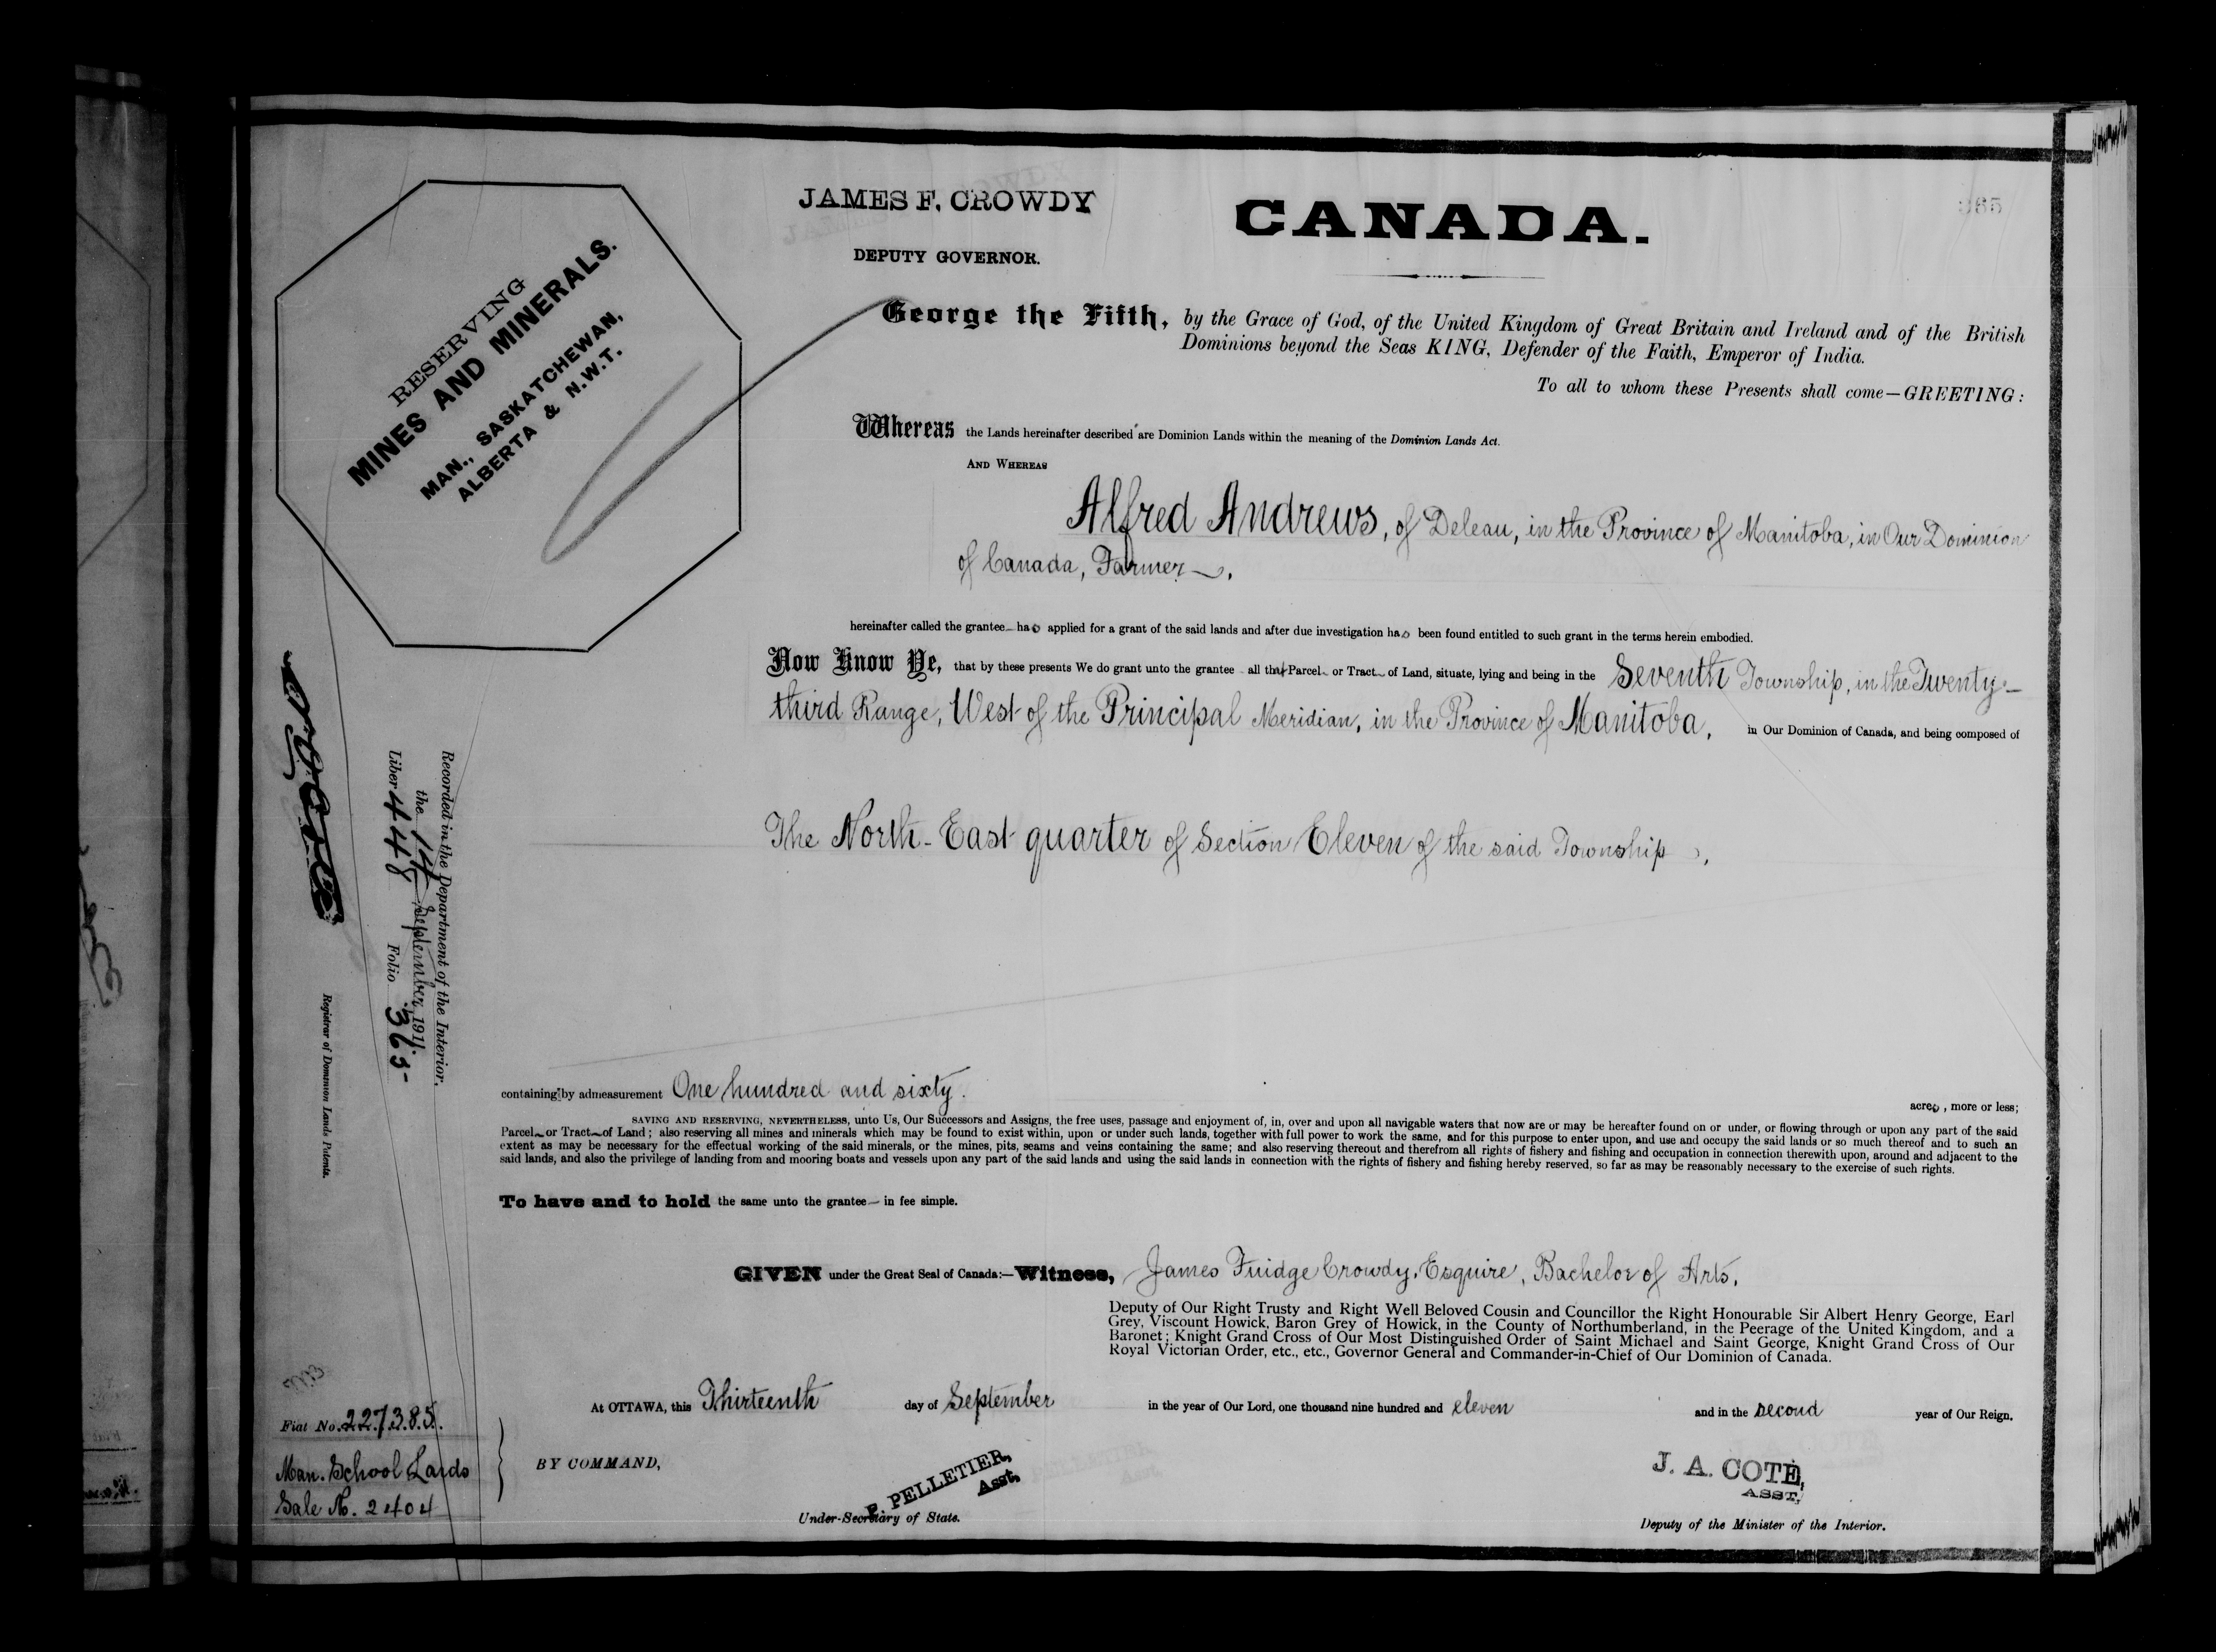 JAMES F. CROWDY
DEPUTY GOVERNOR.
CANADA.
365
RESERVING
MINES AND MINERALS.
MAN., SASKATCHEWAN,
ALBERTA & N.W.T.
George the Fifth, by the Grace of God, of the United Kingdom of Great Britain and Ireland and of the British
Dominions beyond the Seas KING, Defender of the Faith, Emperor of India.
To all to whom these Presents shall come—GREETING:
Whereas the Lands hereinafter described are Dominion Lands within the meaning of the Dominion Lands Act.
AND WHEREAS
Alfred Andrews, of Deleau, in the Province of Manitoba, in Our Dominion
of Canada, Farmer.
hereinafter called the grantee has applied for a grant of the said lands and after due investigation has been found entitled to such grant in the terms herein embodied.
Now Know Ye, that by these presents We do grant unto the grantee all that Parcel or Tract of Land, situate, lying and being in the Seventh Township, in the Twenty-
third Range, West of the Principal Meridian, in the Province of Manitoba, in Our Dominion of Canada, and being composed of
The North-East quarter of Section Eleven of the said Township,
Recorded in the Department of the Interior,
the 14 September, 1911.
Liber 448 Folio 365-
Registrar of Dominion Lands Patents.
containing by admeasurement One hundred and sixty.
acres, more or less;
SAVING AND RESERVING, NEVERTHELESS, unto Us, Our Successors and Assigns, the free uses, passage and enjoyment of, in, over and upon all navigable waters that now are or may be hereafter found on or under, or flowing through or upon any part of the said
Parcel or Tract of Land; also reserving all mines and minerals which may be found to exist within, upon or under such lands, together with full power to work the same, and for this purpose to enter upon, and use and occupy the said lands or so much thereof and to such an
extent as may be necessary for the effectual working of the said minerals, or the mines, pits, seams and veins containing the same; and also reserving thereout and therefrom all rights of fishery and fishing and occupation in connection therewith upon, around and adjacent to the
said lands, and also the privilege of landing from and mooring boats and vessels upon any part of the said lands and using the said lands in connection with the rights of fishery and fishing hereby reserved, so far as may be reasonably necessary to the exercise of such rights.
To have and to hold the same unto the grantee— in fee simple.
GIVEN under the Great Seal of Canada:—Witness, James Fuidge Crowdy, Esquire, Bachelor of Arts,
Deputy of Our Right Trusty and Right Well Beloved Cousin and Councillor the Right Honourable Sir Albert Henry George, Earl
Grey, Viscount Howick, Baron Grey of Howick, in the County of Northumberland, in the Peerage of the United Kingdom, and a
Baronet; Knight Grand Cross of Our Most Distinguished Order of Saint Michael and Saint George, Knight Grand Cross of Our
Royal Victorian Order, etc., etc., Governor General and Commander-in-Chief of Our Dominion of Canada.
At OTTAWA, this Thirteenth day of September in the year of Our Lord, one thousand nine hundred and eleven and in the second year of Our Reign.
Fiat No. 227385.
Man. School Lands
Sale No. 2404
BY COMMAND,
P. PELLETIER,
Asst.
Under-Secretary of State.
J. A. COTÉ,
ASST.
Deputy of the Minister of the Interior.